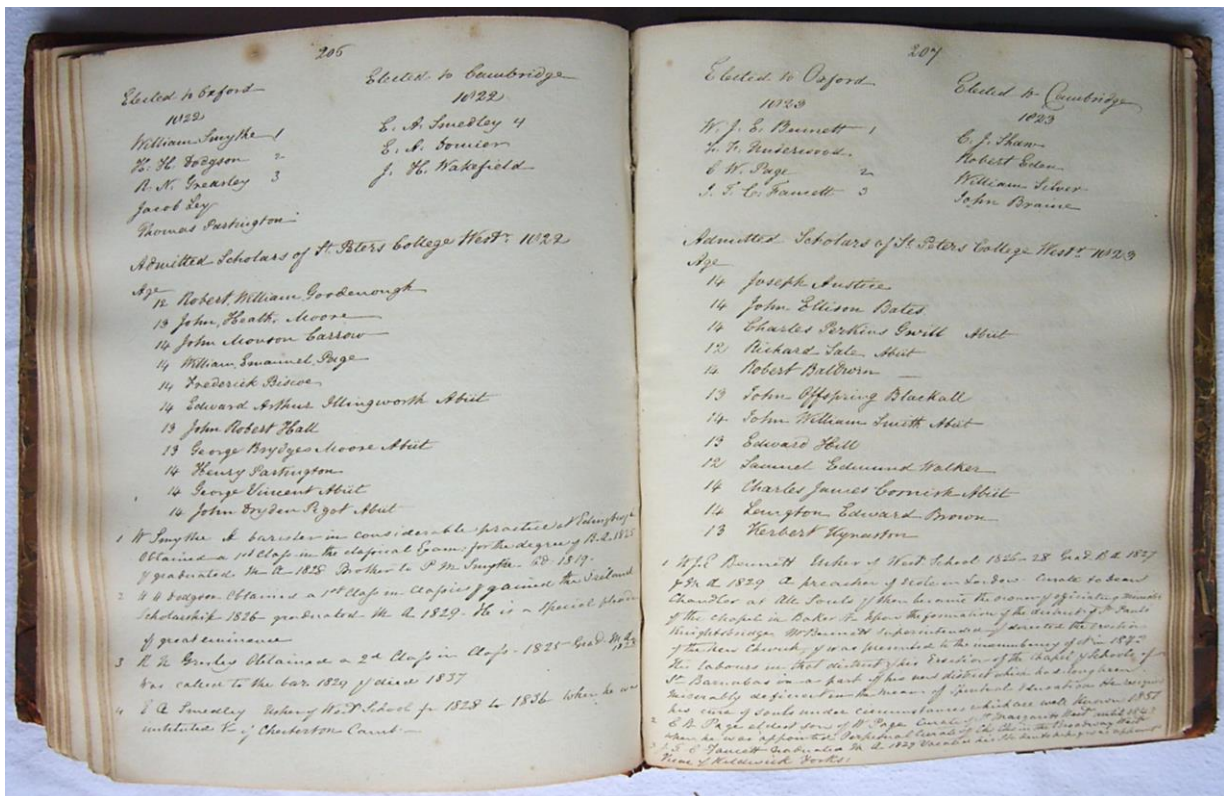 206
Elected to Oxford
1822
William Smythe 1
H. H. Dodgson 2
R. N. Gresley 3
Jacob Ley
Thomas Partington
Elected to Cambridge
1822
E. A. Smedley 4
E. A. Domier
J. H. Wakefield
Admitted Scholars of St. Peters College Westr. 1822
Age
12 Robert, William, Goodenough
13 John, Heath, Moore
14 John Monson Carrow
14 William, Emanuel, Page
14 Frederick Biscoe
14 Edward Arthur Illingworth Abiit
13 John Robert Hall
13 George Brydges Moore Abiit
14 Henry Partington
14 George Vincent Abiit
14 John Dryden Pigot Abiit
1 W Smythe A barister in considerable practice at Edinburgh
Obtained a 1st Class in the classical Exam. for the degree of B.A. 1825
& graduated M A 1828 Brother to P. M. Smythe 1819.
2 H H Dodgson Obtained a 1st Class in Classics & gained the Ireland
Scholarship 1826 graduated M A 1829. He is a special pleader
of great eminence
3 R N Gresley Obtained a 2d Class in Class. 1825 Grad. M.A.
was called to the bar 1829 & died 1837
4 E A Smedley Usher of West School fr 1828 to 1836 when he was
instituted V. of Chesterton Camb.
207
Elected to Oxford
1823
W. J. E. Bennett 1
Underwood
C W. Page 2
J. T. C. Fawcett 3
Elected to Cambridge
1823
C. J. Shaw
Robert Eden
William Silver
John Braine
Admitted Scholars of St. Peters College Westr. 1823
Age
14 Joseph Anstice
14 John Ellison Bates
14 Charles Perkins Gwilt Abiit
12 Richard Sale Abiit
14 Robert Baldwin
13 John Offspring Blackall
14 John William Smith Abiit
13 Edward Hill
12 Samuel Edmund Walker
14 Charles James Cornish Abiit
14 Langton Edward Brown
13 Herbert Kynaston
1 W J E Bennett Usher of West School 1826-28 Grad. B.A. 1827
& M A 1829 A preacher of note in London. Curate to Dean
Chandler at All Souls & then became the owner & officiating minister
of the chapel in Baker St. Upon the formation of the district of St Pauls
Knightsbridge Mr Bennett superintended & directed the erection
of the new Church, & was presented to the incumbency of it in 1843
His labours in that district & his Erection of the chapel & schools of
St Barnabas in a part of his district which has long been
miserably deficient in the means of Spiritual Education He resigned
his cure of souls under circumstances which are well known 1851
2 C W Page eldest son of W. Page Curate of St Margarets West until 184
when he was appointed Perpetual Curate of Ch. Ch. in the Broadway West
3 J. T. C Fawcett Graduated M. A 1829 Vacated his Studentship was appointed
Vicar of Kildwick Yorks.